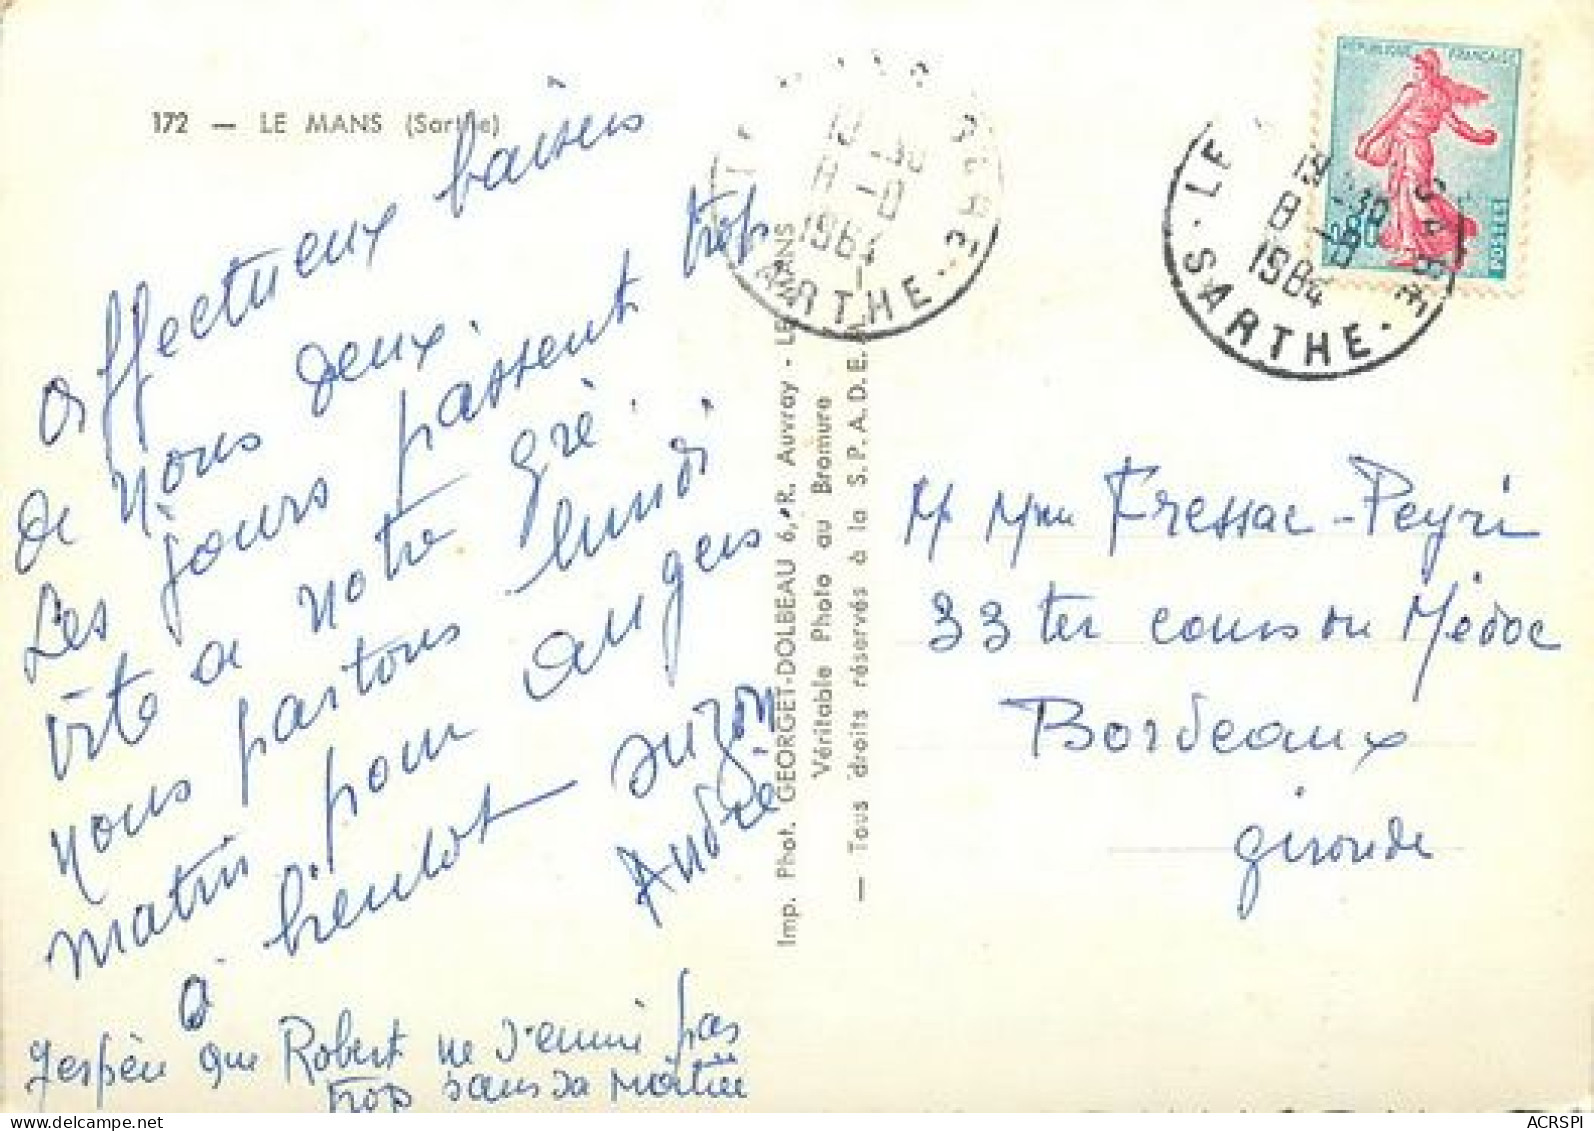 172 — LE MANS (Sarthe)
affectueux baisers
de nous deux.
Les jours passent trop
vite a notre gré.
nous partons lundi
matin pour angers
a bientot suzon
André
J'espère que Robert ne s'ennui pas
trop sans sa moitiée
Imp. Phot. GEORGET-DOLBEAU 6, R. Auvray - LE MANS
Véritable Photo au Bromure
— Tous droits réservés à la S.P.A.D.E.M. —
13 -30
8 -8
1964
SARTHE
RÉPUBLIQUE FRANÇAISE
POSTES
LE MANS
19 -30
8 -8
1964
SARTHE
M Mme Fressac-Peyri
33 ter cours du Médoc
Bordeaux
gironde
ACRSPI